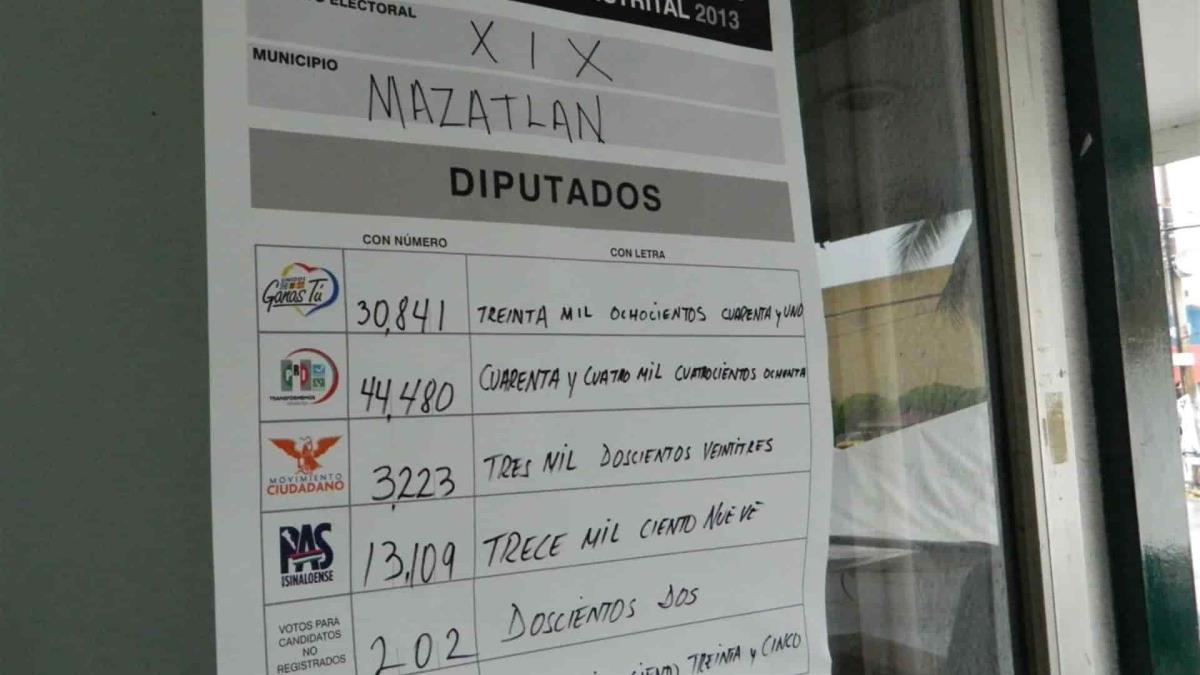 DISTRITAL 2013
ELECTORAL XIX
MUNICIPIO MAZATLAN
DIPUTADOS
CON NÚMERO CON LETRA
Ganas Tú 30,841 TREINTA MIL OCHOCIENTOS CUARENTA Y UNO
PRI TRANSFORMEMOS 44,480 CUARENTA Y CUATRO MIL CUATROCIENTOS OCHENTA
MOVIMIENTO CIUDADANO 3,223 TRES MIL DOSCIENTOS VEINTITRES
PAS SINALOENSE 13,109 TRECE MIL CIENTO NUEVE
VOTOS PARA CANDIDATOS NO REGISTRADOS 202 DOSCIENTOS DOS
CIENTO TREINTA Y CINCO